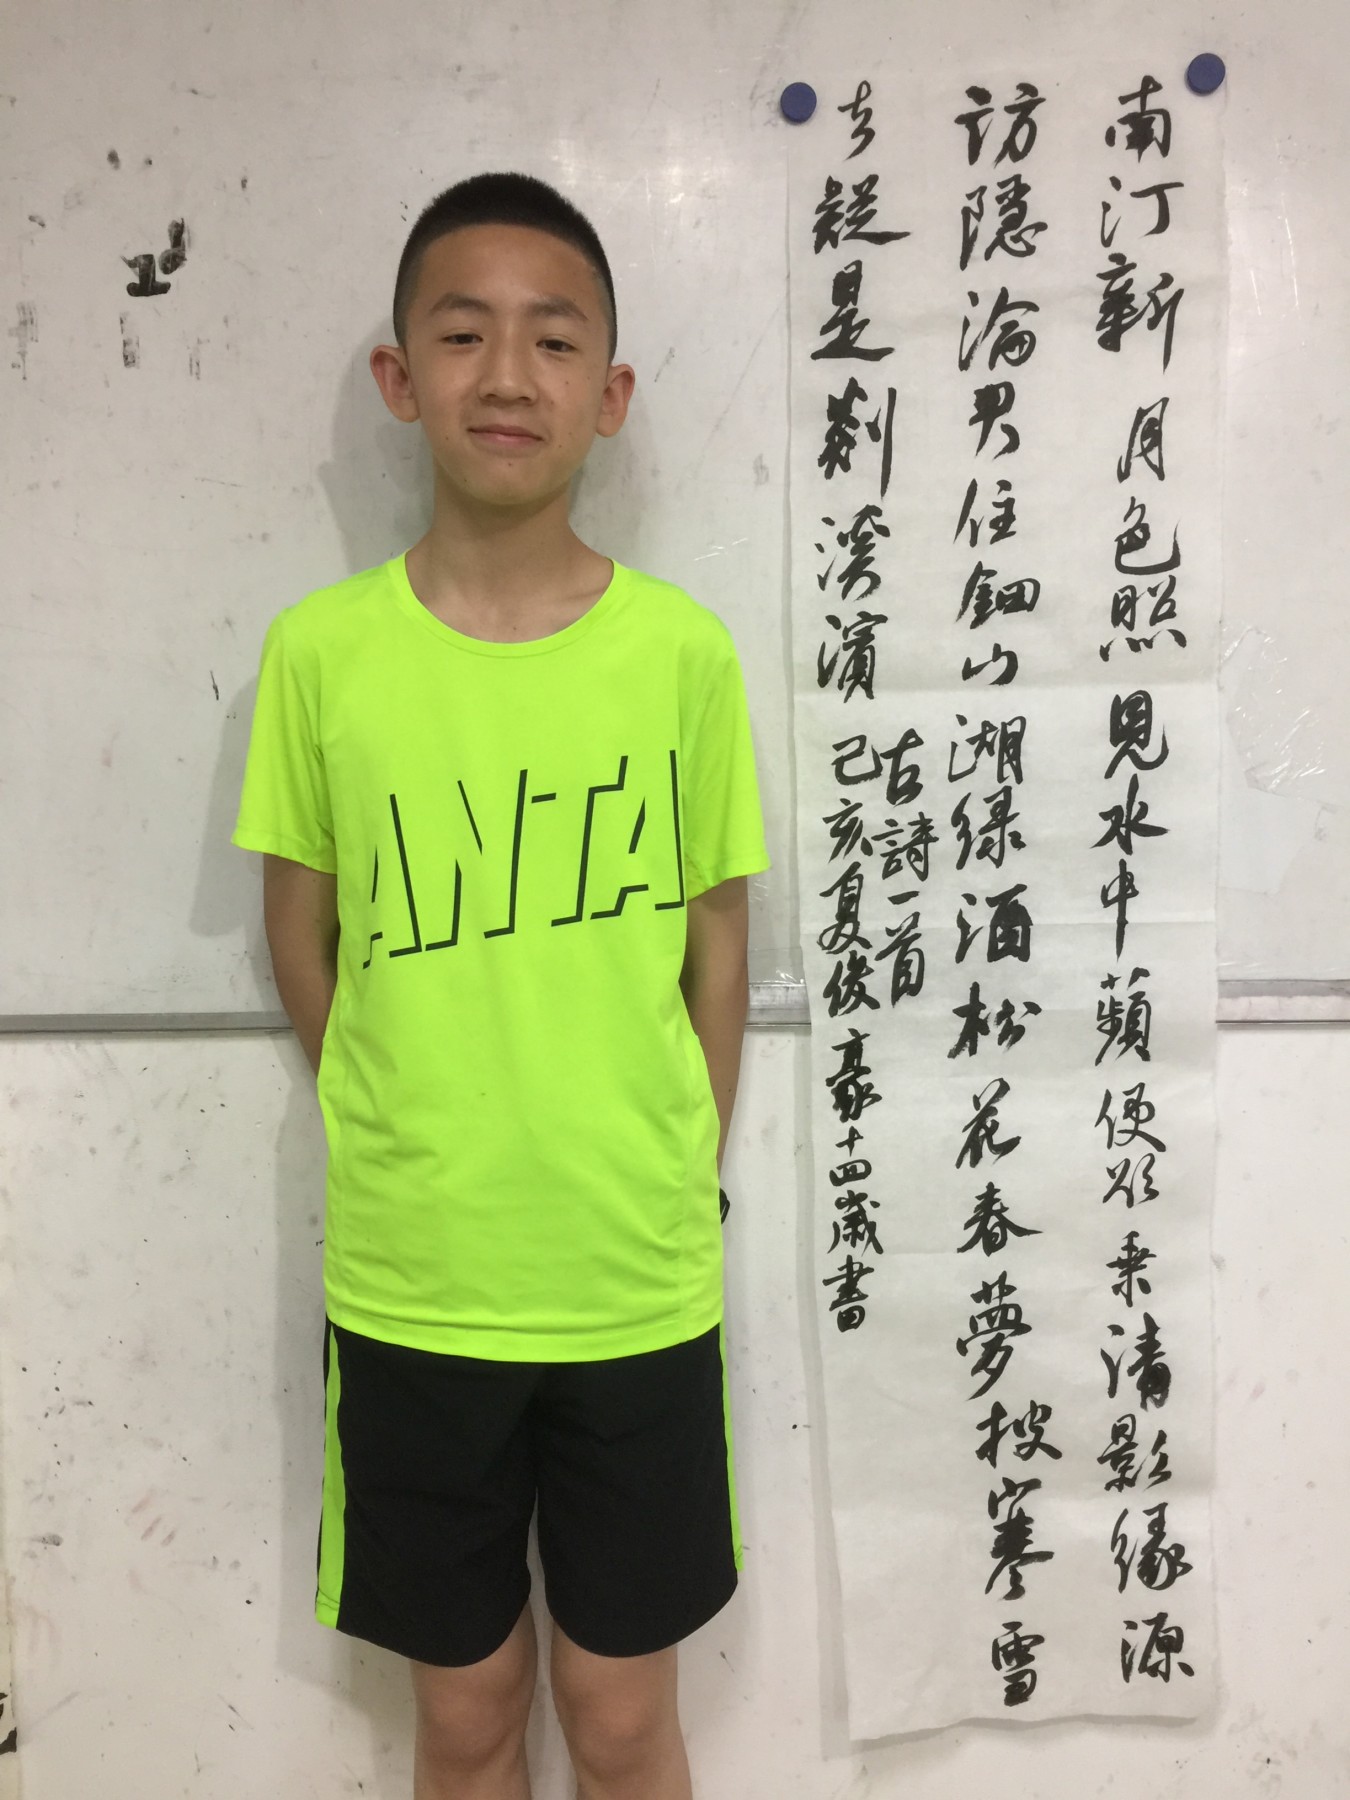 南汀新月色照見水中蘋便欲乘清影緣源
訪隱淪君住鈿山湖綠酒松花春夢披寒雪
去疑是剡溪濱
古詩一首
己亥夏俊豪十四歲書
ANTA